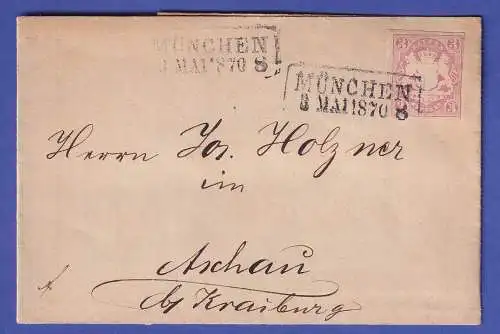 MÜNCHEN
3 MAI 1870 8
3 3
MÜNCHEN
3 MAI 1870 8
3
Herrn Jos. Holzner
im
Aschau
by Kraiburg